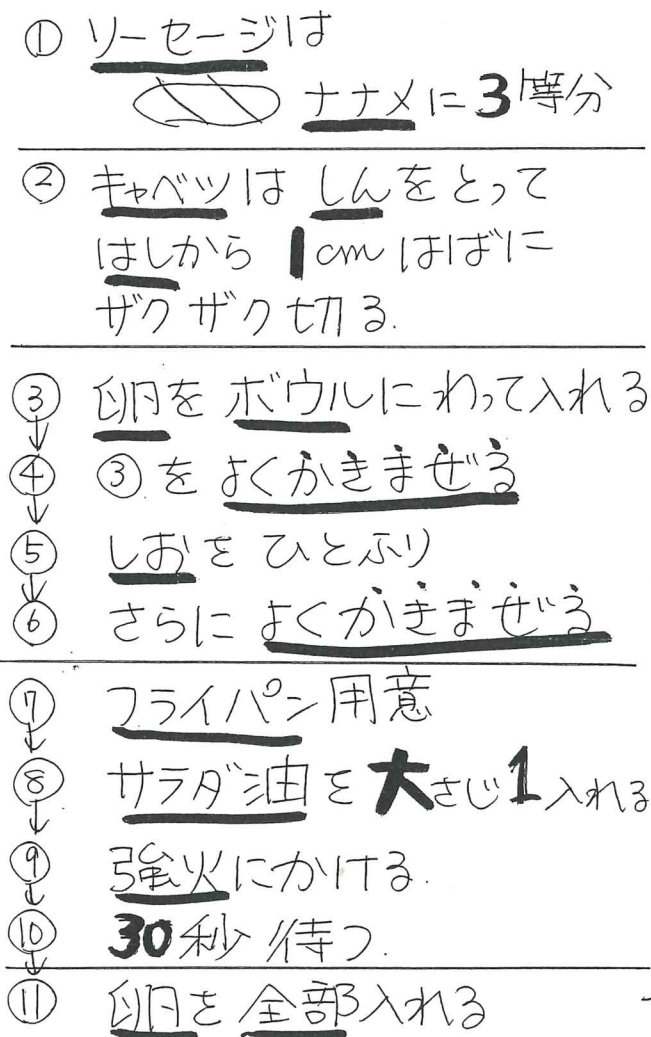 ① ソーセージは
ナナメに3等分
② キャベツは しんをとって
はしから 1cm はばに
ザクザク切る.
③ 卵をボウルにわって入れる
④ ③をよくかきまぜる
⑤ しおをひとふり
⑥ さらによくかきまぜる
⑦ フライパン用意
⑧ サラダ油を大さじ1入れる
⑨ 強火にかける.
⑩ 30秒待つ.
⑪ 卵を全部入れる